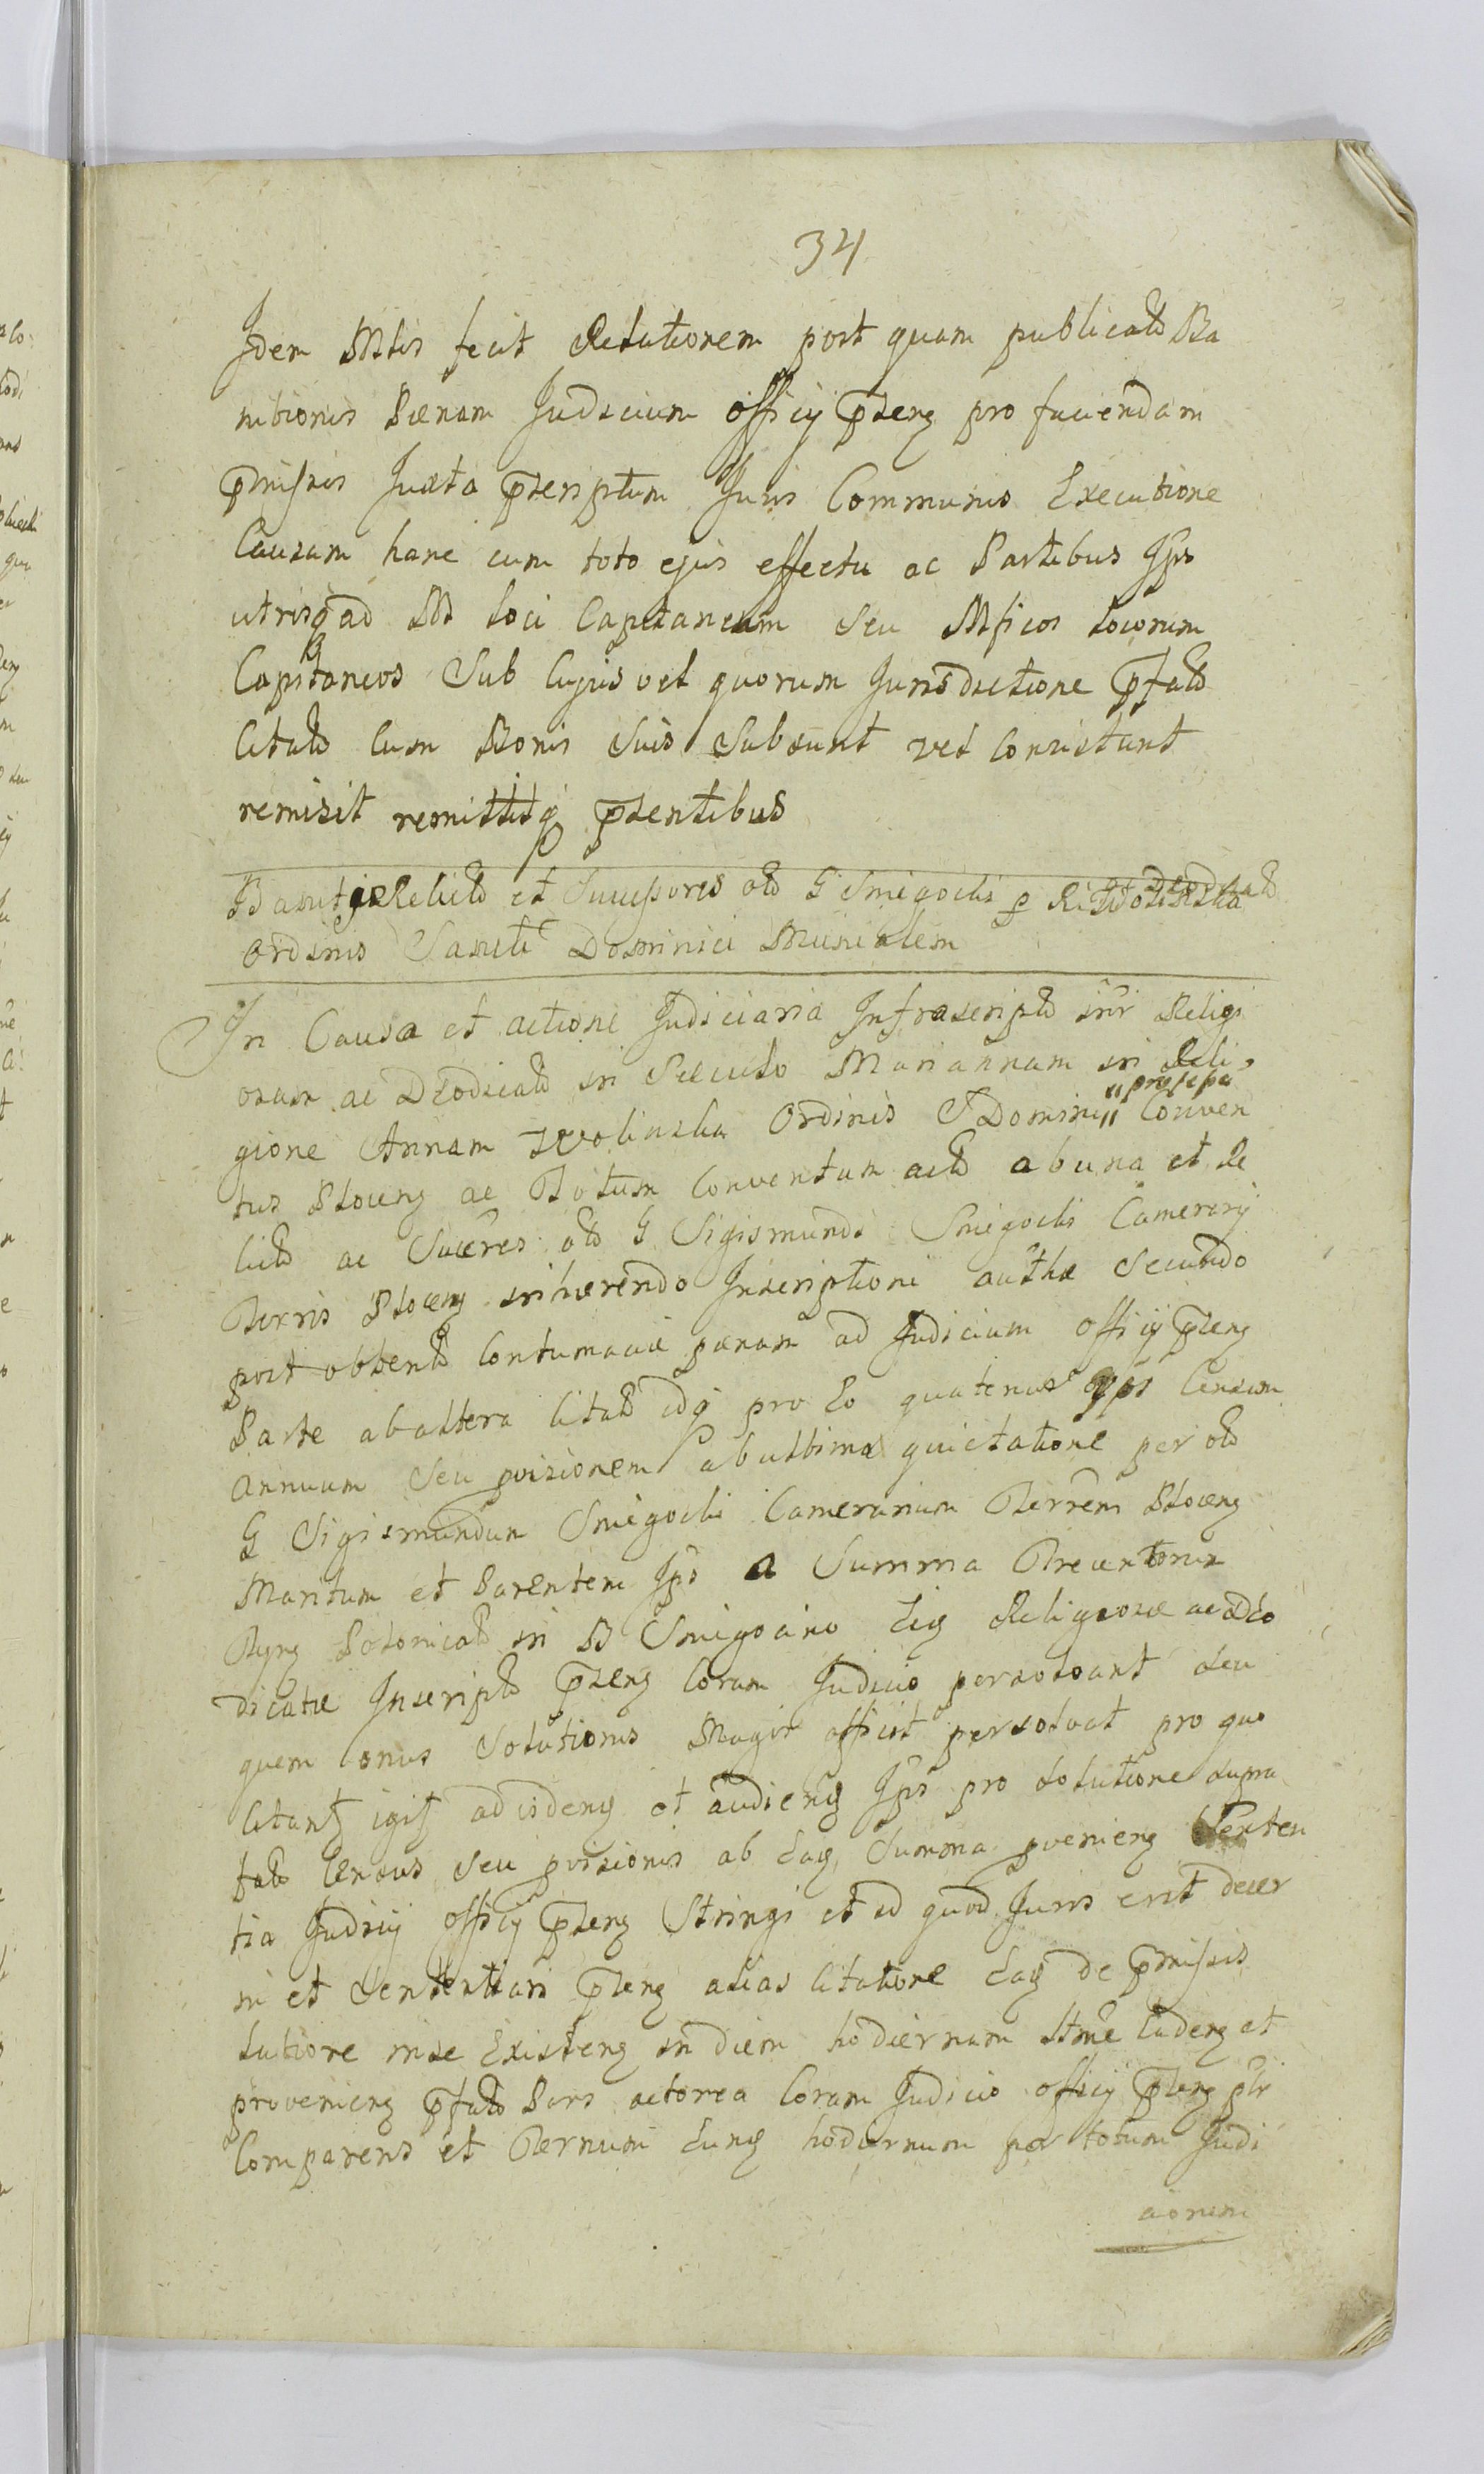 34
Idem Mtis fecit Relationem post quam publicatã Ba
nitionis Pænam Judicium officij p̃seng pro faciendam
p̃missis Juxta p̃scriptum Juris Communis Executione
Causam hanc cum toto ejus effectu ac Partibus Ips
utrisq ad Md loci Capitaneum Seu Mficos locorum
Capitaneos Sub Cujus vel quorum Jurisdictione p̃fatã
Citatã Cum Bonis Suis Subsunt vel Consistunt
remisit remittitq p̃sentibus
Banit Relictã et Successores olã G Smigocki p
Ordinis Sancti Dominici Monialem
In Causa et actione Judiciaria Infrascriptã intr Religi
osam ac Deodicatã in Sæculo Mariannam in Reli
gione Annam Wolinska Ordinis S Domini " præsepu
" Conven
tus Ploceng ac Totum Conventum actã ab una et Re
lictã ac Succres olã G Sigismundi Smigocki Camerarij
Terris Ploceng inhærendo Inscriptioni authæ Secundo
post obtentã Contumaciæ pænam ad Judicium officij p̃seng
Parte ab altera Citatã idq pro Eo quatenus Ips Censum
annuum Seu pvisionem ab ultima quietatione per olã
G Sigismundum Smigocki Camerarium Terrem Ploceng
Maritum et Parentem Ips a Summa Trecentorum
Tyng Polonicalã in B Smigocino Eig Religiosæ ac Deo
dicatæ Inscriptã p̃seng Coram Judicio persolvant seu
quem onus Solutionis Magis afficit persolvat pro quo
Citantg igitg ad videng et audieng Ips pro solutione supra
fatã Census Seu pvisionis ab Eag Summa pvenieng Senten
tia Judicij officij p̃seng Stringi et id quod Juris erit decer
ni et Sententiari p̃seng alias Citatione Eag de p̃missis
latiore in se Existeng in diem hodiernam ltme Cadeng et
provenieng p̃fatã Pars actorea Coram Judicio officij p̃seng plr
Comparens et Ternum Eung hodiernum per totum Judi
ciorum